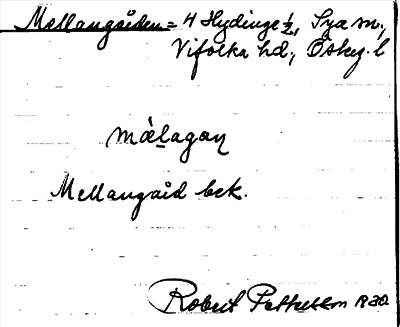 Mellangården = 4 Hydinge ½, Sya sn.,
Vifolka hd., Östeg. l
mälagaɳ
Mellangård bek.
Robert Pettersson 1930